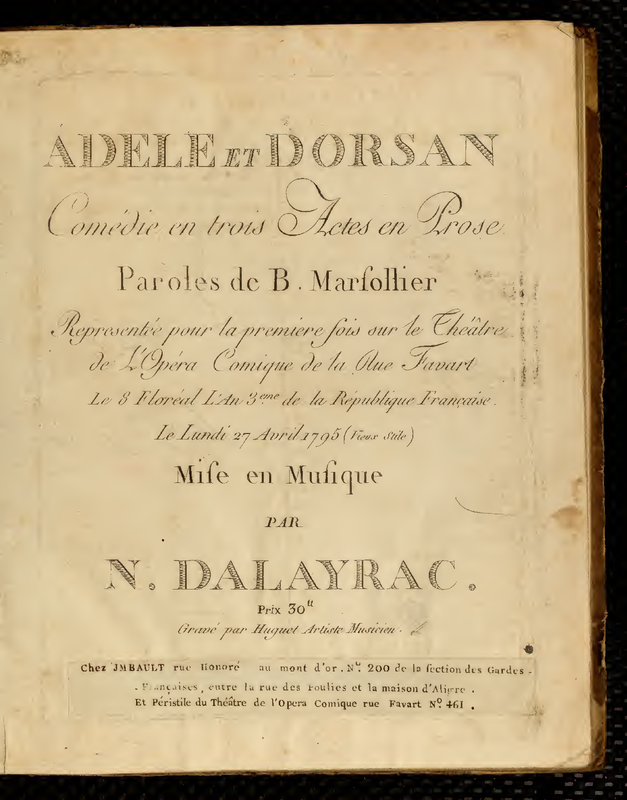 ADELE ET DORSAN
Comédie en trois Actes en Prose
Paroles de B. Marſollier
Representée pour la premiere fois sur le Théâtre
de L'Opéra Comique de la Rue Favart
Le 8 Floréal L'An 3eme de la République Française.
Le Lundi 27 Avril 1795 (Vieux Stile)
Miſe en Muſique
PAR
N. DALAYRAC.
Prix 30tt
Gravé par Huguet Artiste Musicien.
Chez JMBAULT rue Honoré au mont d'or. No. 200 de la ſection des Gardes-
Françaises, entre la rue des Poulies et la maison d'Aligre.
Et Péristile du Théâtre de l'Opera Comique rue Favart No. 461.